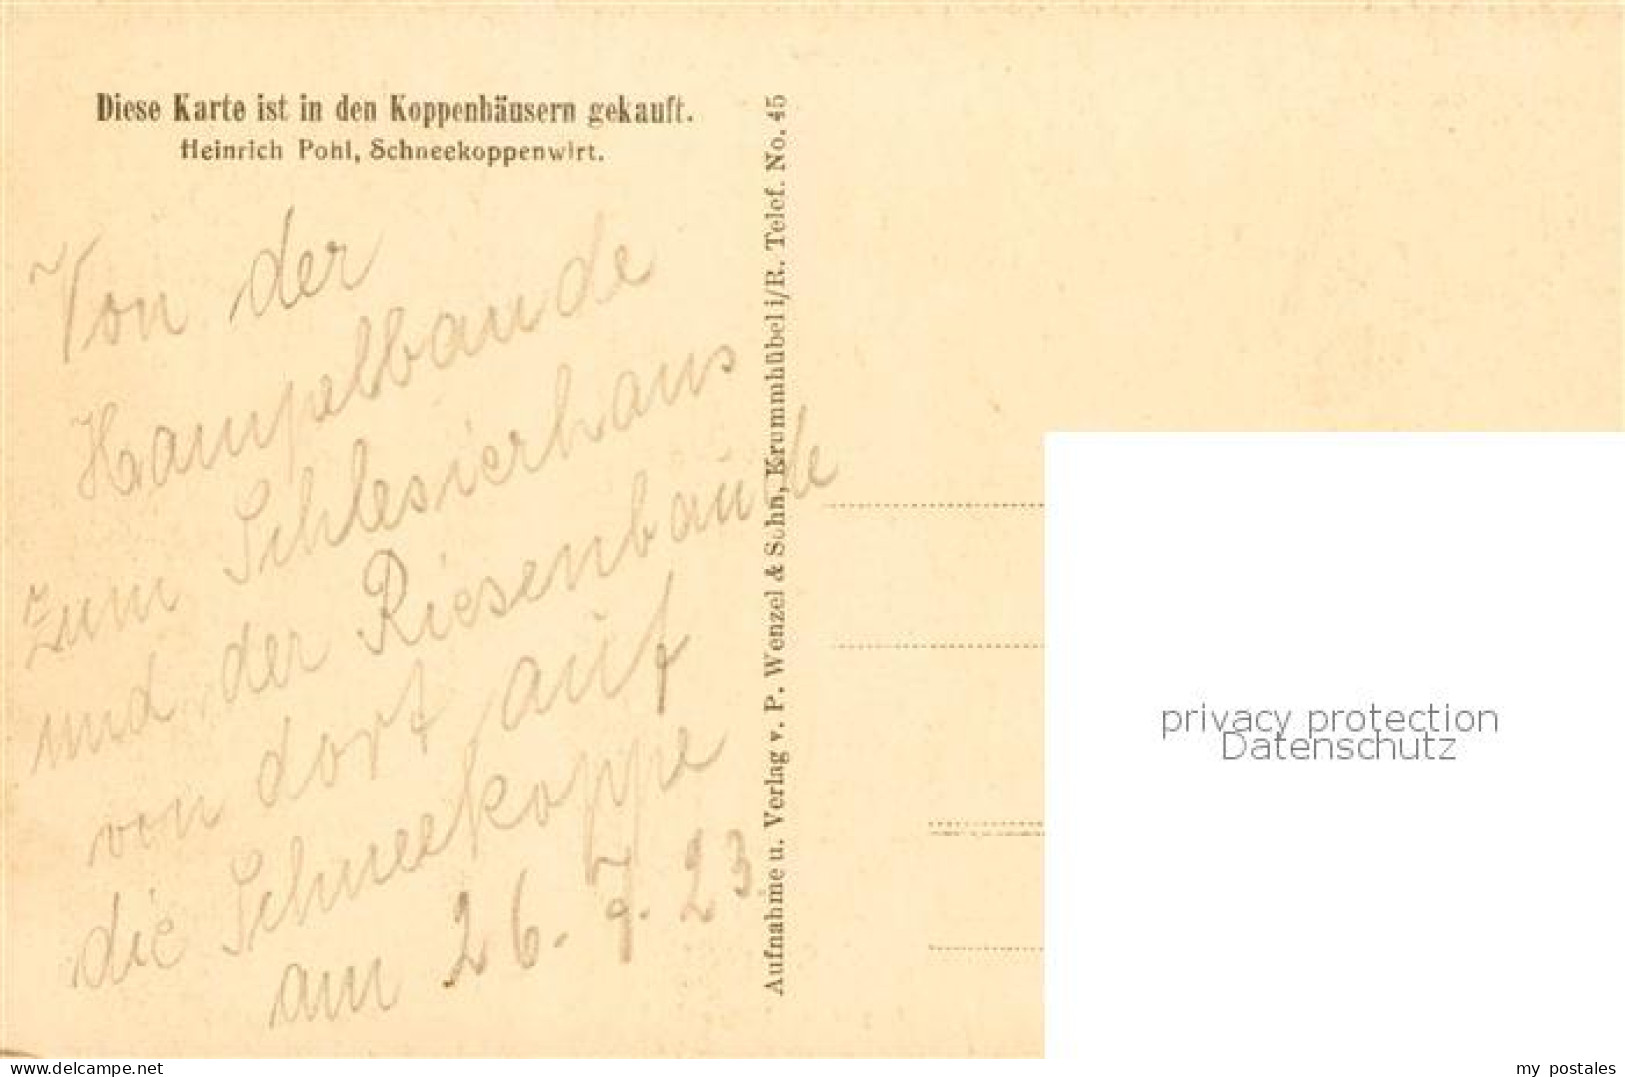 Diese Karte ist in den Koppenhäusern gekauft.
Heinrich Pohl, Schneekoppenwirt.
Von der
Hampelbaude
zum Schlesierhaus
und der Riesenbaude
von dort auf
die Schneekoppe
am 26.7.23.
Aufnahme u. Verlag v. P. Wenzel & Sohn, Krummhübel i/R. Telef. No. 45
privacy protection
Datenschutz
www.delcampe.net
my_postales